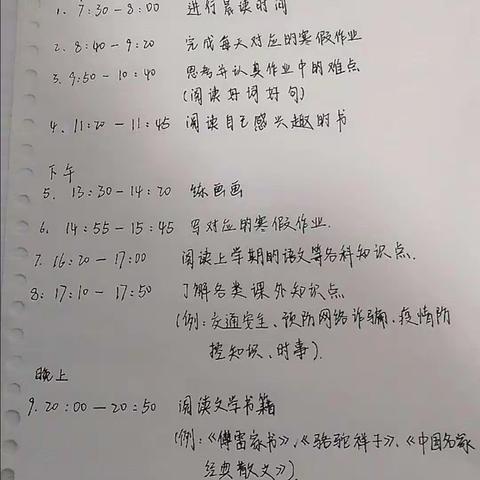 1. 7:30-8:00 进行晨读时间
2. 8:40-9:20 完成每天对应的寒假作业
3. 9:50-10:40 思考并认真作业中的难点
(阅读好词好句)
4. 11:20-11:45 阅读自己感兴趣的书
下午
5. 13:30-14:20 练画画
6. 14:55-15:45 写对应的寒假作业.
7. 16:20-17:00 阅读上学期的语文等各科知识点.
8: 17:10-17:50 了解各类课外知识点
(例:交通安全、预防网络诈骗、疫情防
控知识、时事).
晚上
9. 20:00-20:50 阅读文学书籍
(例:《傅雷家书》、《骆驼祥子》、《中国名家
经典散文》).